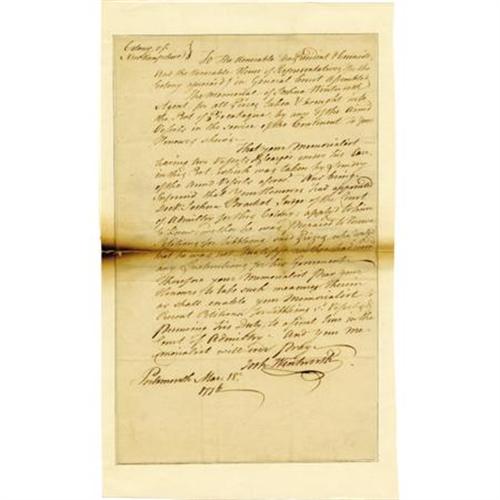 Colony of
New Hampshire }
To The Honorable the President & Council
And the Honorable House of Representatives for the
Colony aforesaid in General Court Assembled
The Memorial of Joshua Wentworth
Agent for all Prizes taken & brought into
the Port of Piscataqua by any of the Armd
Vessels in the service of the Continent to your
Honours shews
That your Memorialist
having two Vessels & Cargoes under his Care
in this Port which was taken by
of the Armd Vessels afores And being
informd that Your Honours had appointed
Joshua Brackett Judge of the Court
of Admiralty for this Colony applyd to him
to know whether he was prepared to receive
Petitions for Libelling said Prizes, who
that he was not
any Instructions for his Government
Therefore your Memorialist Pray your
Honours to take such measures therein
as shall enable your Memorialist to
Present Petitions for Libelling Vessels &
Pursuing his Duty to a final Tryal in the
Court of Admiralty And your Me-
morialist will ever Pray
Josh Wentworth
Portsmouth Mar. 18
1776